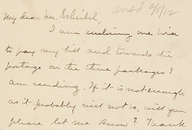 ansd 2/1/12
My dear Mr. Scheidel,
I am enclosing one
to pay my bill and towards the
postage on the three packages I
am sending. If it is not enough
as it probably will not be, will you
please let me know? Thank